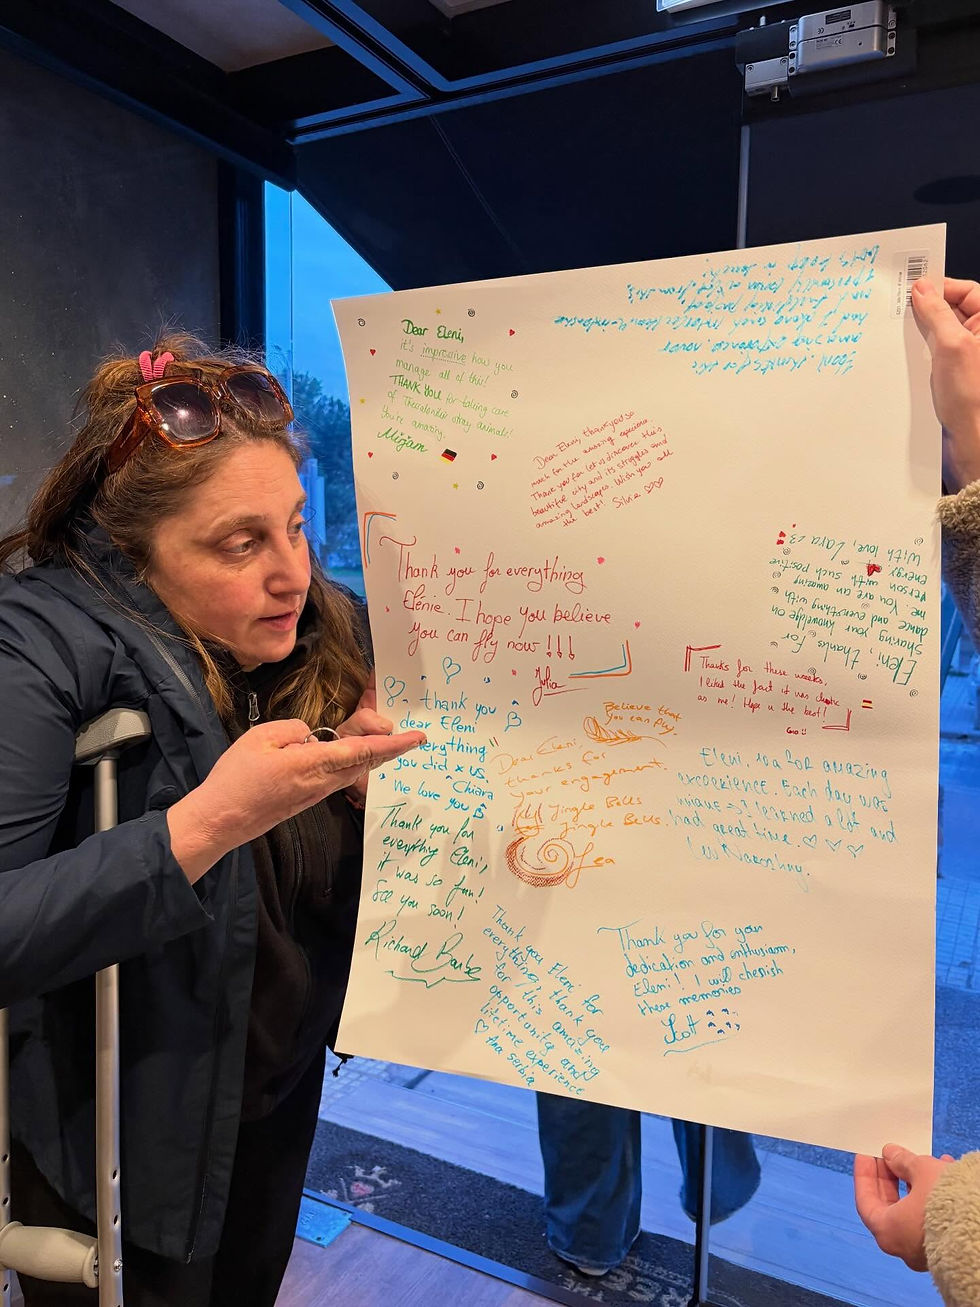 Dear Eleni,
it's impressive how you
manage all of this!
THANK YOU for taking care
of Thessaloniki stray animals!
You're amazing.
Mirjam
Dear Eleni, thank you so
much for the amazing experience.
Thank you for let us discover this
beautiful city and its struggles and
amazing landscapes. Wish you all
the best! Silvia
Thank you for everything
Elenie. I hope you believe
you can fly now!!!
Julia
thank you
dear Eleni
everything
you did x us.
Chiara
We love you
Thank you for
everything Eleni,
it was so fun!
See you soon!
Richard Barbe
Believe that
you can fly.
Dear Eleni,
thanks for
your engagement.
Jingle Bells
Jingle Bells.
Lea
Thank you Eleni for
everything, thank you
for this amazing
opportunity and
lifetime experience
Ana Serbia
Thank you for your
dedication and enthusiasm,
Eleni! I will cherish
these memories
Eleni, amazing
experience. Each day was
unique I learned a lot and
had great time
Thanks for these weeks.
I liked the fact it was chaotic
as me! Hope u the best!
Eleni, thanks for
sharing your knowledge on
dance and everything with
me. You are an amazing
person with such positive
energy.
With love, Zara <3